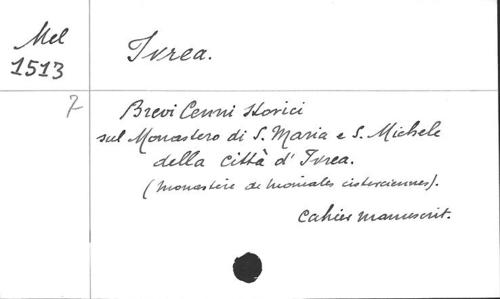 Mel
1513
Ivrea.
7
Brevi Cenni Storici
sul Monastero di S. Maria e S. Michele
della città d' Ivrea.
(monastère de moniales cisterciennes).
Cahier manuscrit.